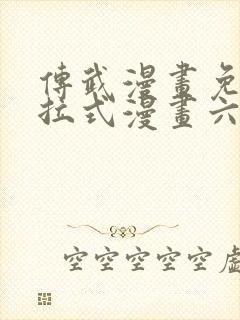 傳武漫畫免
拉式漫畫六
空空空空空虛